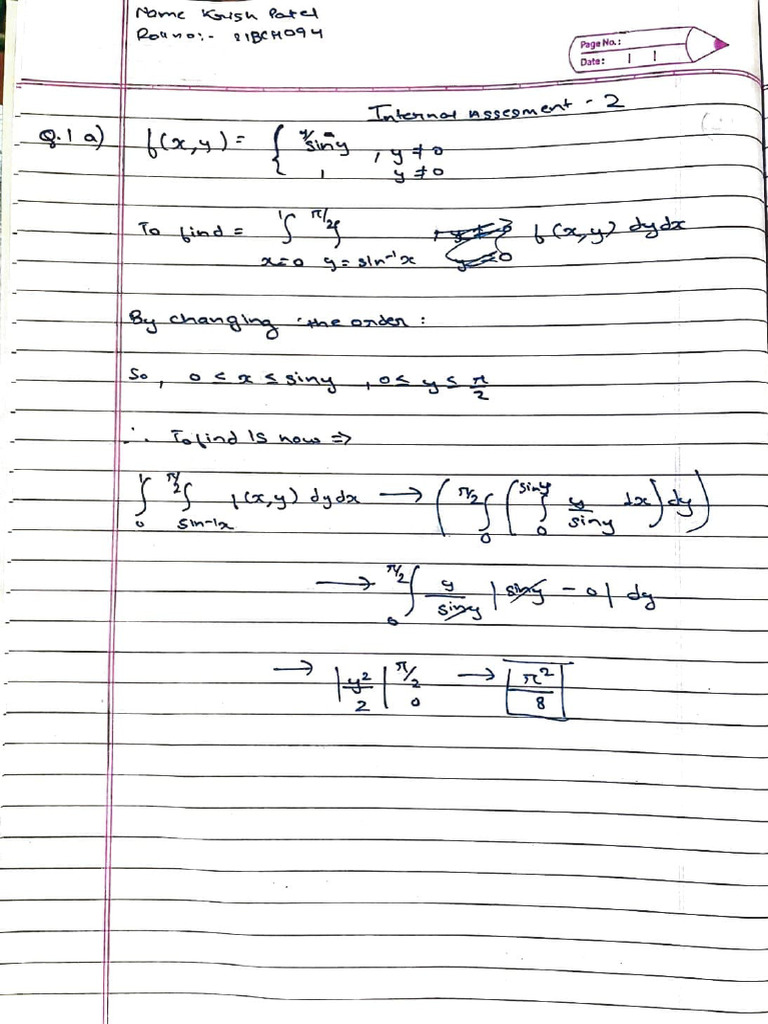 Name Krish Patel
Roll no:- 21BCH094
Page No.:
Date: | |
Internal Assesment - 2
Q.1 a) f(x,y) = { y/siny , y ≠ 0
, y ≠ 0
To find = ∫₀¹ ∫^π/2 f(x,y) dydx
x=0 y=sin⁻¹x
By changing the order :
So, 0 < x ≤ siny , 0 ≤ y ≤ π/2
∴ To find IS now ⇒
∫₀¹ ∫_{sin⁻¹x}^{π/2} f(x,y) dydx → ( ∫₀^{π/2} ( ∫₀^{siny} y/siny dx ) dy )
→ ∫₀^{π/2} y/siny |siny - 0| dy
→ |y²/2|₀^{π/2} → π²/8